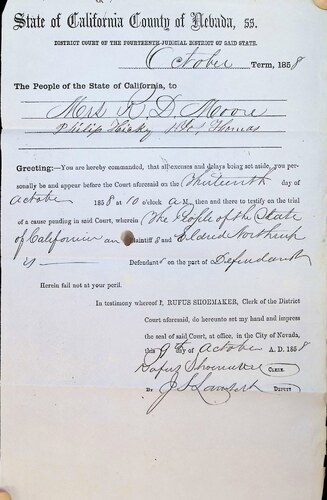 State of California County of Nevada, ss.
DISTRICT COURT OF THE FOURTEENTH JUDICIAL DISTRICT OF SAID STATE.
October Term, 1858
The People of the State of California, to
Mrs R. D. Moore
Philip Hicky Thomas
Greeting:—You are hereby commanded, that all excuses and delays being set aside, you per-
sonally be and appear before the Court aforesaid on the Thirteenth day of
October 1858 at 10 o'clock A M., then and there to testify on the trial
of a cause pending in said Court, wherein The People of the State
of California are Plaintiff s and Eldred Northrup
is Defendant s on the part of Defendant
Herein fail not at your peril.
In testimony whereof I, RUFUS SHOEMAKER, Clerk of the District
Court aforesaid, do hereunto set my hand and impress
the seal of said Court, at office, in the City of Nevada,
this 9th day of October A. D. 1858
Rufus Shoemaker CLERK.
By J S Lambert DEPUTY